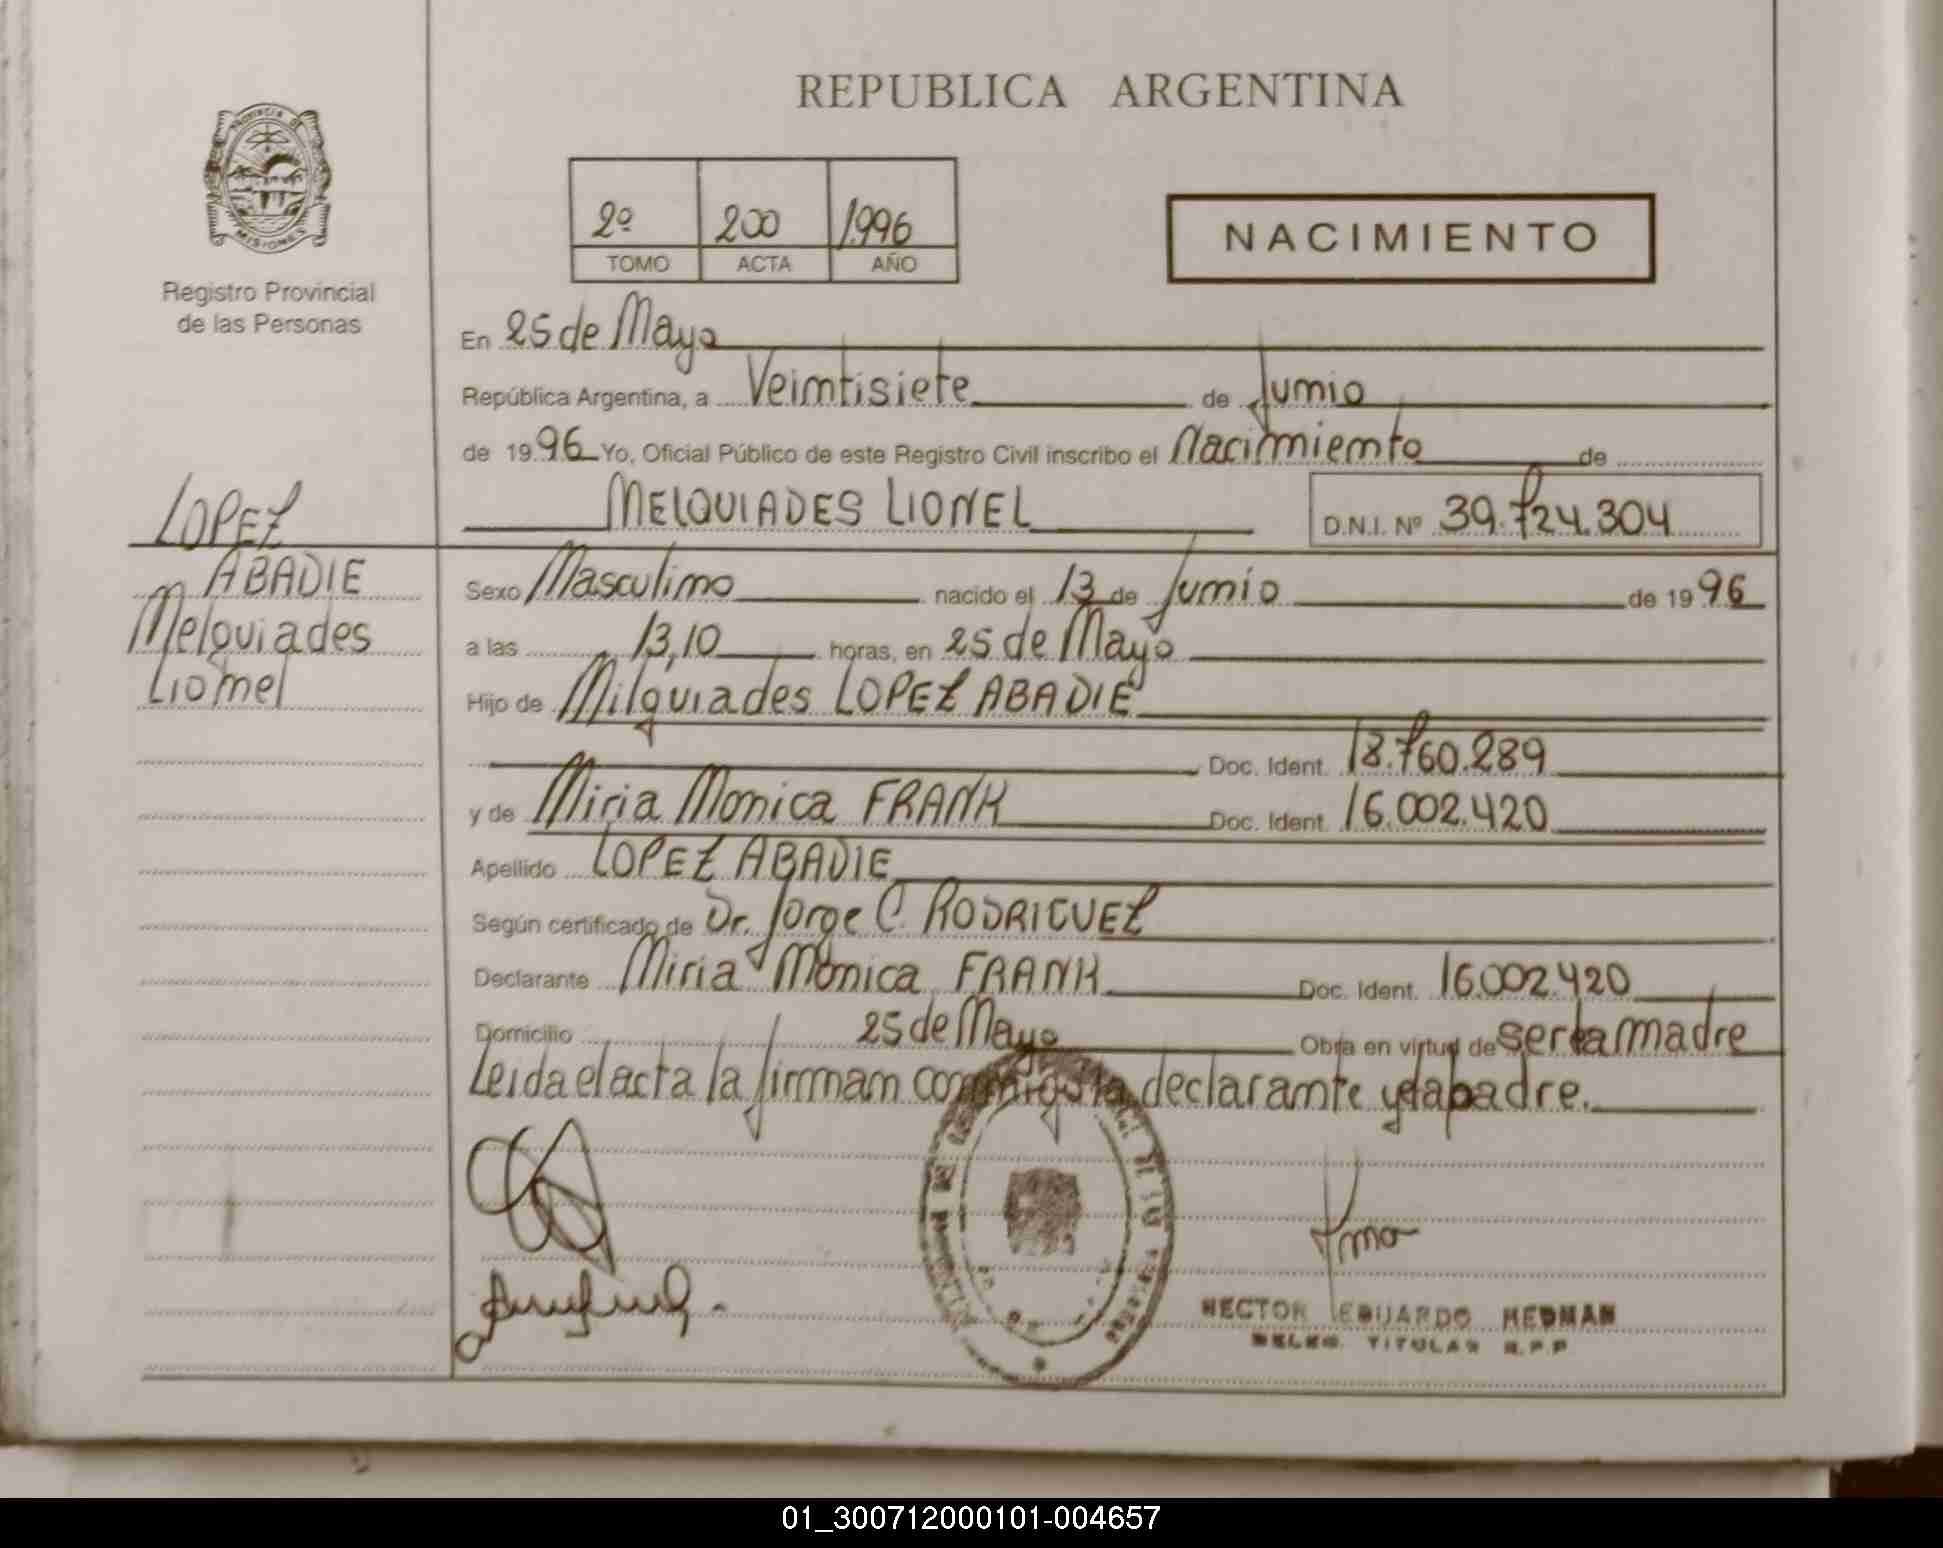 REPUBLICA ARGENTINA
PROVINCIA DE
MISIONES
Registro Provincial
de las Personas
2º 200 1996
TOMO ACTA AÑO
NACIMIENTO
En 25 de Mayo
República Argentina, a Veimtisiete de Jumio
de 1996 Yo, Oficial Público de este Registro Civil inscribo el Nacimiemto de
MELQUIADES LIONEL D.N.I. Nº 39.724.304
LOPEZ
ABADIE
Melquiades
Liomel
Sexo Masculimo nacido el 13 de Jumio de 1996
a las 13,10 horas, en 25 de Mayo
Hijo de Milquiades LOPEZ ABADIE
Doc. Ident. 18.760.289
y de Miria Monica FRANK Doc. Ident. 16.002.420
Apellido LOPEZ ABADIE
Según certificado de Dr. Jorge C. RODRIGUEZ
Declarante Miria Monica FRANK Doc. Ident. 16.002.420
Domicilio 25 de Mayo Obra en virtud de ser la madre
Leida el acta la firmam conmigo la declarante y el padre.
HECTOR EDUARDO HEDMAN
DELEG. TITULAR R.P.P
01_300712000101-004657